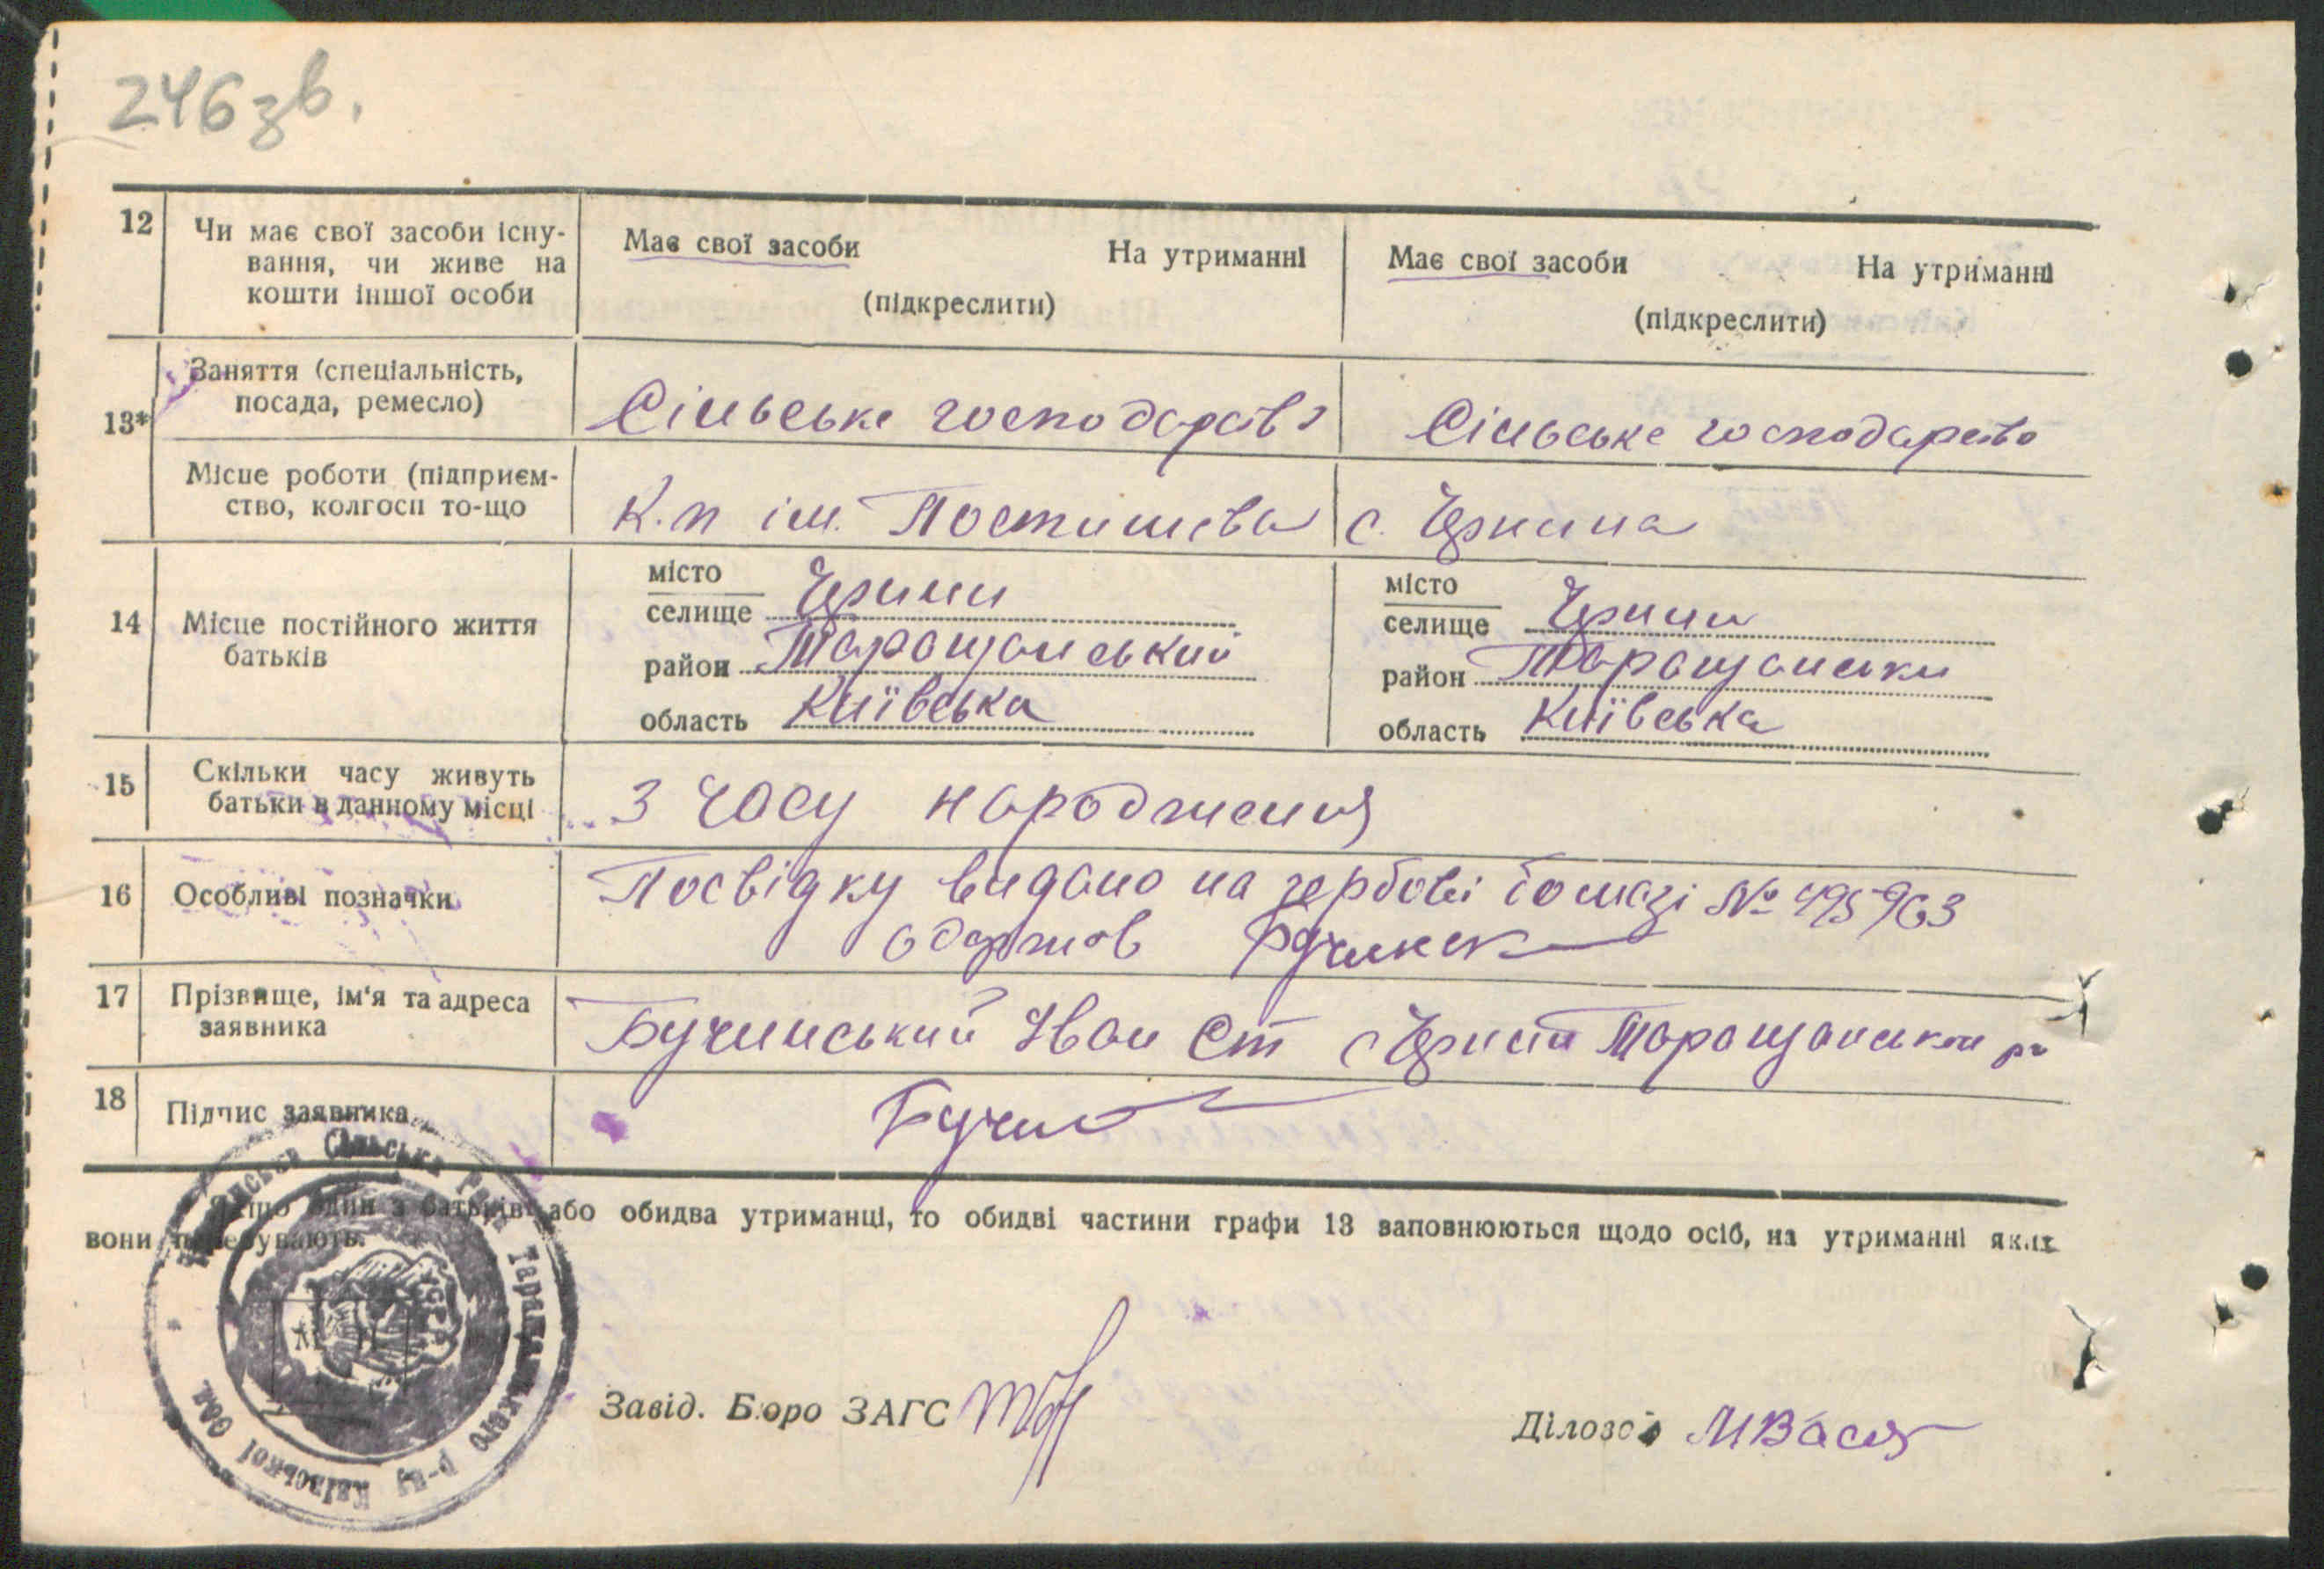 246 зв.
12 Чи має свої засоби існу- Має свої засоби На утриманні Має свої засоби На утриманні
вання, чи живе на
кошти іншої особи (підкреслити) (підкреслити)
Заняття (спеціальність,
посада, ремесло) Сільське господарство Сільське господарство
13*
Місце роботи (підприєм- К.п ім. Постишева с.
ство, колгосп то-що
14 Місце постійного життя
батьків
місто місто
селище селище
район Таращанський район Таращанськи
область Київська область Київська
15 Скільки часу живуть
батьки в данному місці З часу народження
16 Особливі позначки Посвідку видано на гербові бомазі № 495963
одержав
17 Прізвище, ім'я та адреса
заявника Бучинський Иван Ст с
18 Підпис заявника Бучин
Якщо один з батьків або обидва утриманці, то обидві частини графи 13 заповнюються щодо осіб, на утриманні яких
вони перебувають.
Сільська Рада Таращанського р-ну Київської обл.
УСРР
Завід. Бюро ЗАГС Діловод